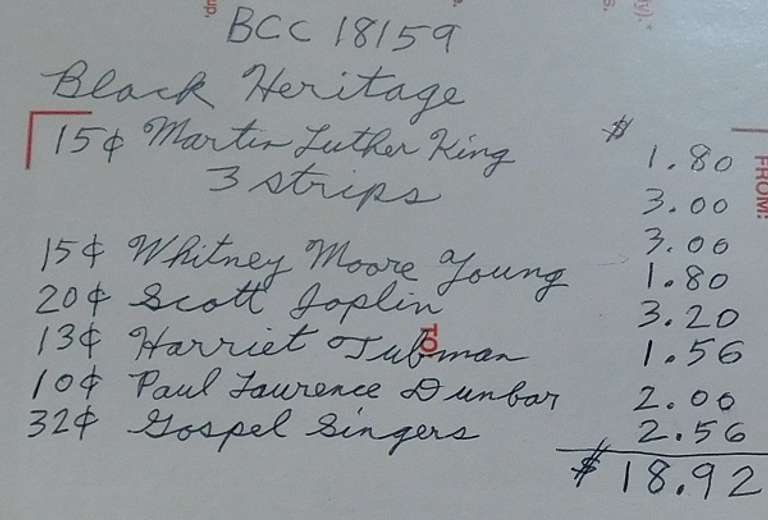 up.
e.
s.
ny).*
BCC 18159
Black Heritage
15¢ Martin Luther King $ 1.80
3 strips 3.00
3.00
15¢ Whitney Moore Young 1.80
20¢ Scott Joplin 3.20
13¢ Harriet Tubman 1.56
10¢ Paul Laurence Dunbar 2.00
32¢ Gospel Singers 2.56
$ 18.92
FROM:
TO